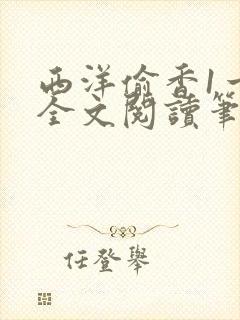 西洋偷香1一
全文閱讀筆
任登舉